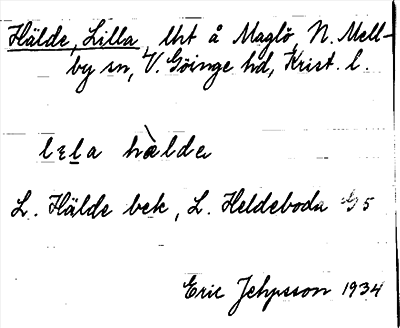 Hälde, Lilla, lht å Maglö, N. Mell-
by sn, V. Göinge hd, Krist. l.
lɛla hàldɐ
L. Hälde bek, L. Heldeboda 5
Eric Jehpsson 1934